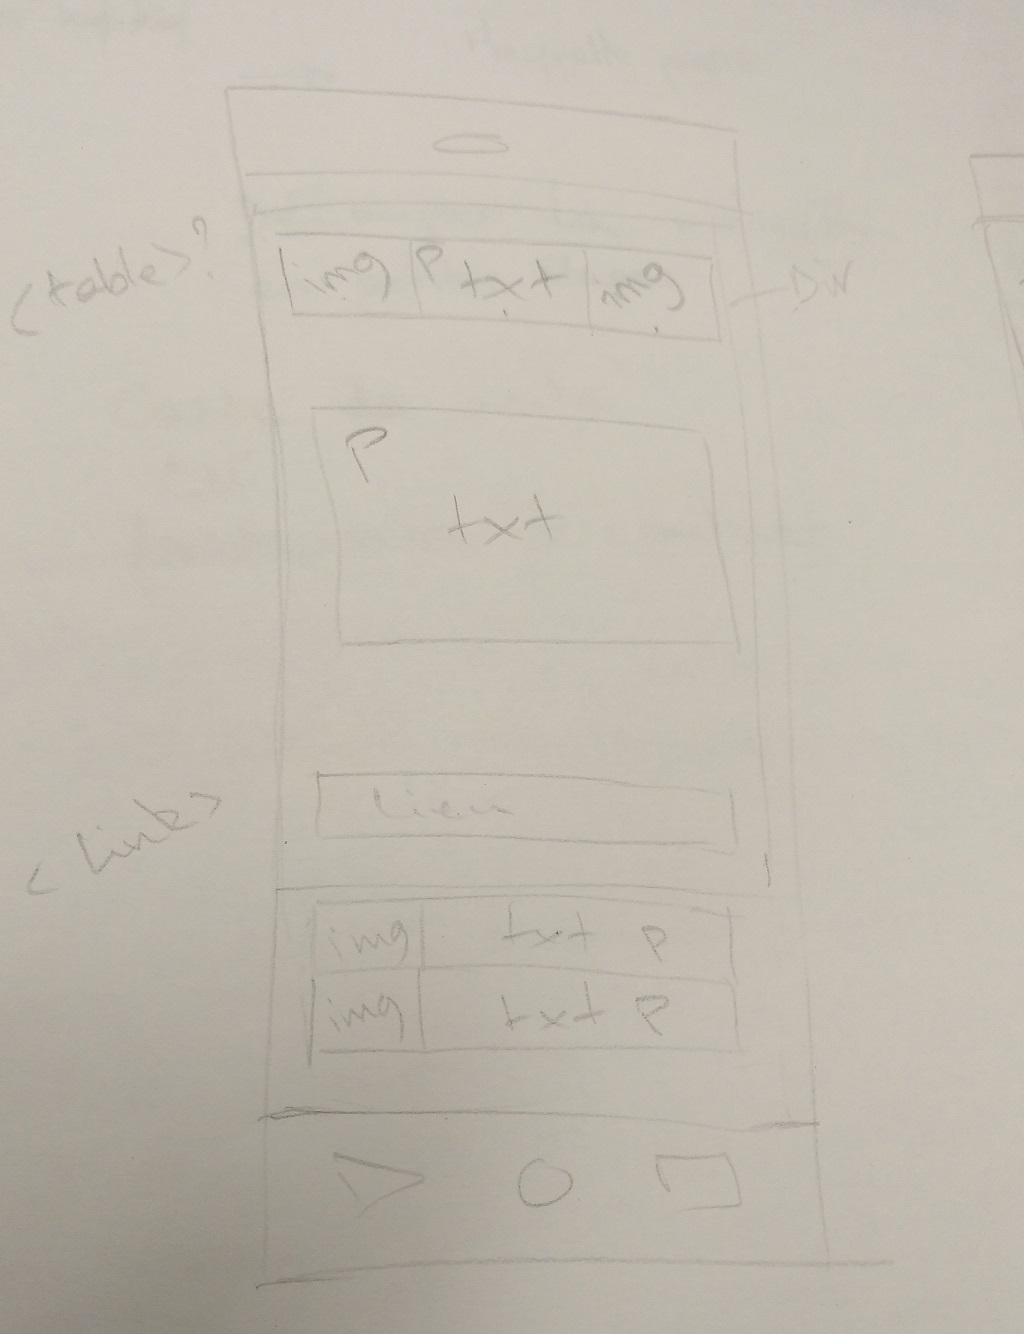 <table>?
img P txt img
Div
P
txt
<Link>
Lien
img txt P
img txt P